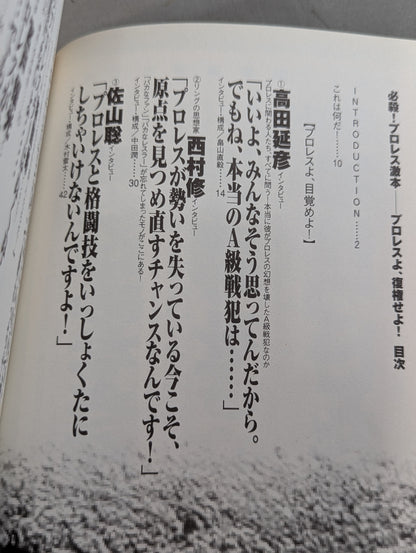 必殺！プロレス激本――プロレスよ、復権せよ！　目次
INTRODUCTION……2
これは何だ！……10
【プロレスよ、目覚めよ！】
①高田延彦インタビュー
プロレスに関わる人たち、すべてに問う！本当に彼がプロレスの幻想を壊したA級戦犯なのか
「いいよ、みんなそう思ってんだから。
でもね、本当のA級戦犯は……」
インタビュー・構成／畠山直毅……14
②リングの思想家 西村修インタビュー
「プロレスが勢いを失っている今こそ、
原点を見つめ直すチャンスなんです！」
「バカなファン」「バカなレスラー」が忘れてしまったモノがここにある！
インタビュー・構成／中田潤……30
③佐山聡インタビュー
「プロレスと格闘技をいっしょくたに
しちゃいけないんですよ！」
インタビュー・構成／木村重太……42